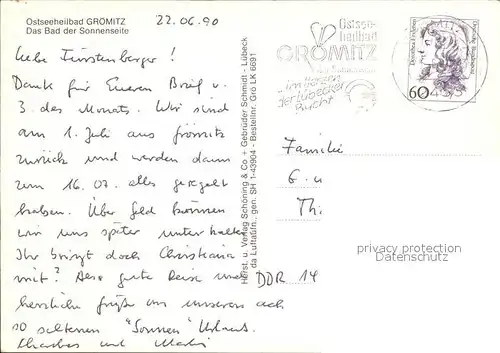 Ostseeheilbad GRÖMITZ
Das Bad der Sonnenseite
22.06.90
Liebe Fürstenberger!
Dank für Eueren Brief v.
3. des Monats. Wir sind
am 1. Juli aus Grömitz
zurück und werden dann
zum 16.07. alles geregelt
haben. Über Geld können
wir uns später unterhalten
Ihr bringt doch Christiana
mit? Also gute Reise und
herzliche Grüße von unserem ach
so seltenen "Sonnen" Urlaub.
und
Horst u. Verlag Schöning & Co + Gebrüder Schmidt - Lübeck
da Luftaufn., gen. SH 1-43904 - Bestellnr. Grö LK 6691
Ostsee-
heilbad
GRÖMITZ
"im Herzen
der Lübecker
Bucht"
Dorothea Erxleben
Deutsche Bundespost
60
Familie
G
Th
DDR 14
privacy protection
Datenschutz